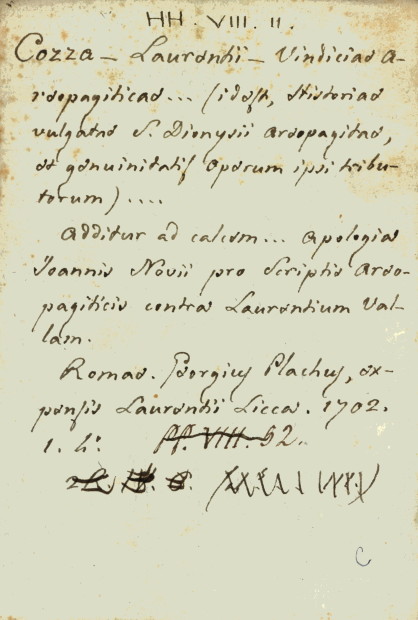 HH. VIII. II.
Cozza - Laurentii - Vindiciae A-
reopagiticae... (idest, Historiae
vulgatae S. Dionysii Areopagitae,
et genuinitatis operum ipsi tribu-
torum)....
Additur ad calcem... Apologia
Joannis Novii pro Scriptis Areo-
pagiticis contra Laurentium Val-
lam.
Romae. Georgius Plachus, ex-
pensis Laurentii Licca. 1702.
VIII. 62.
C